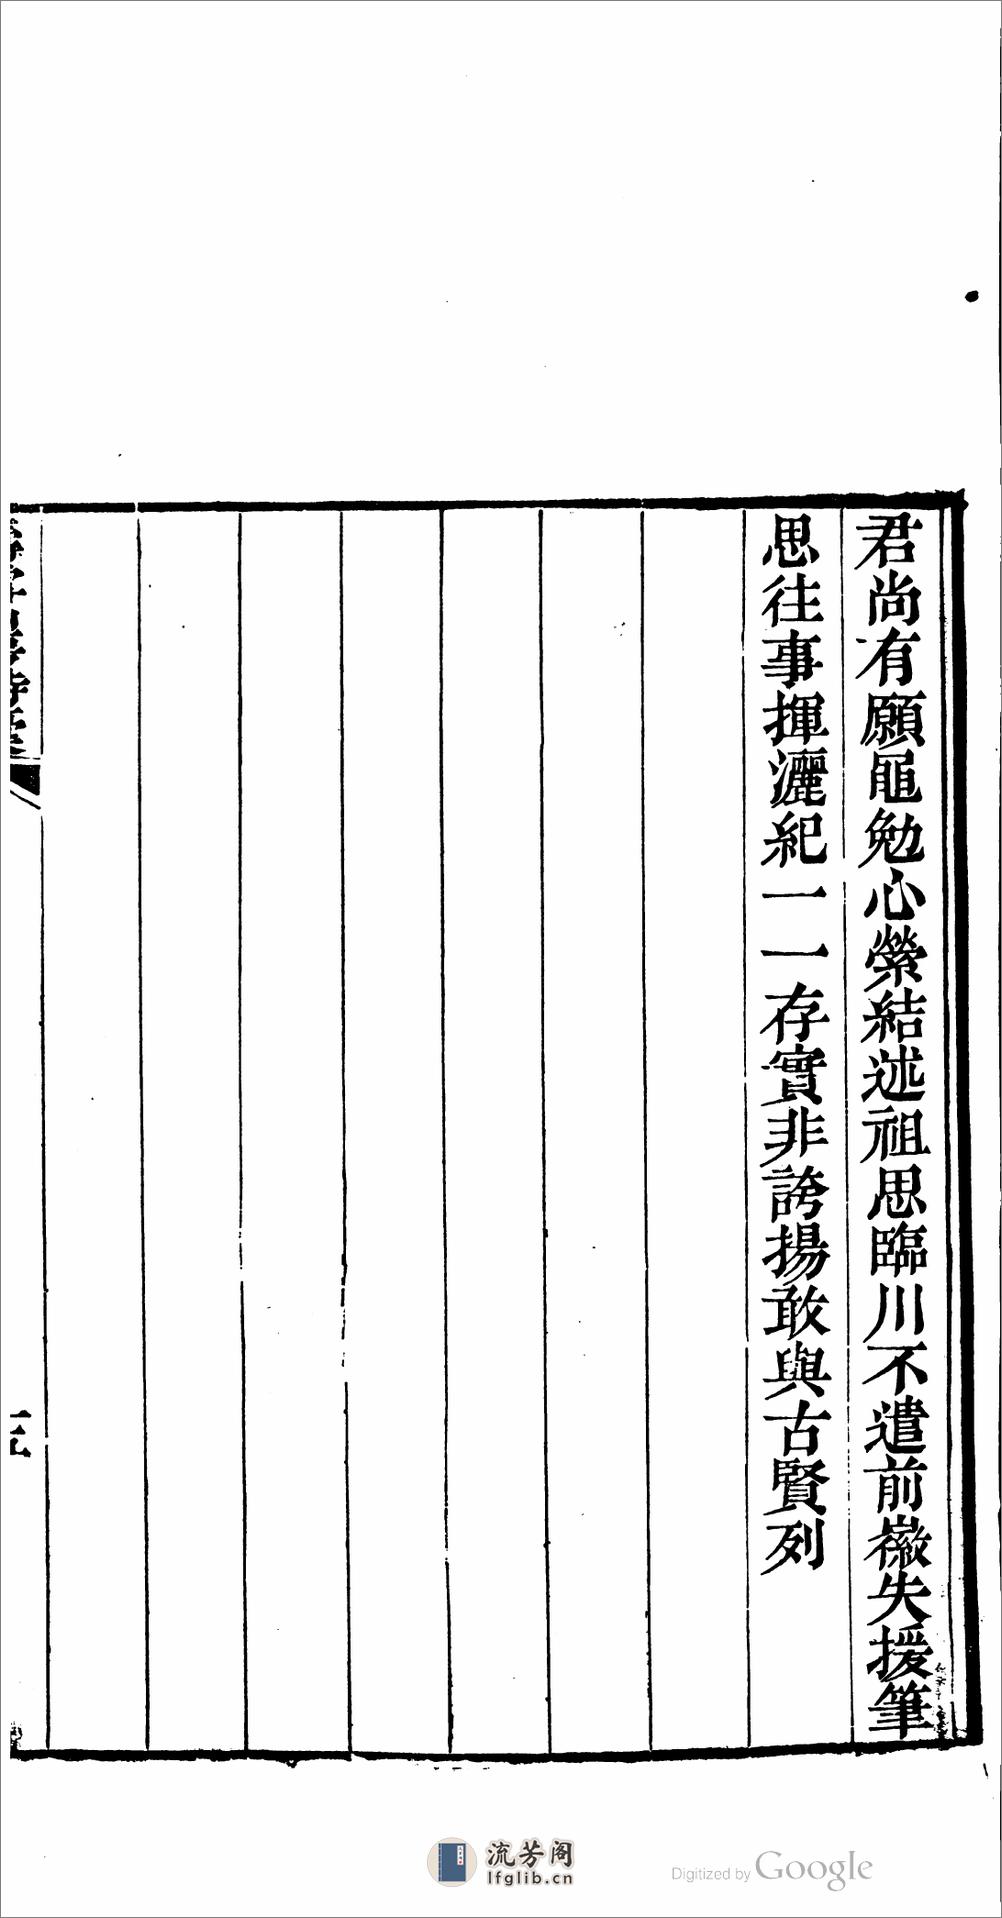 君尚有願黽勉心縈結述祖思臨川不遣前徽失援筆
思往事揮灑紀一一存實非誇揚敢與古賢列
流芳阁
lfglib.cn
Digitized by Google